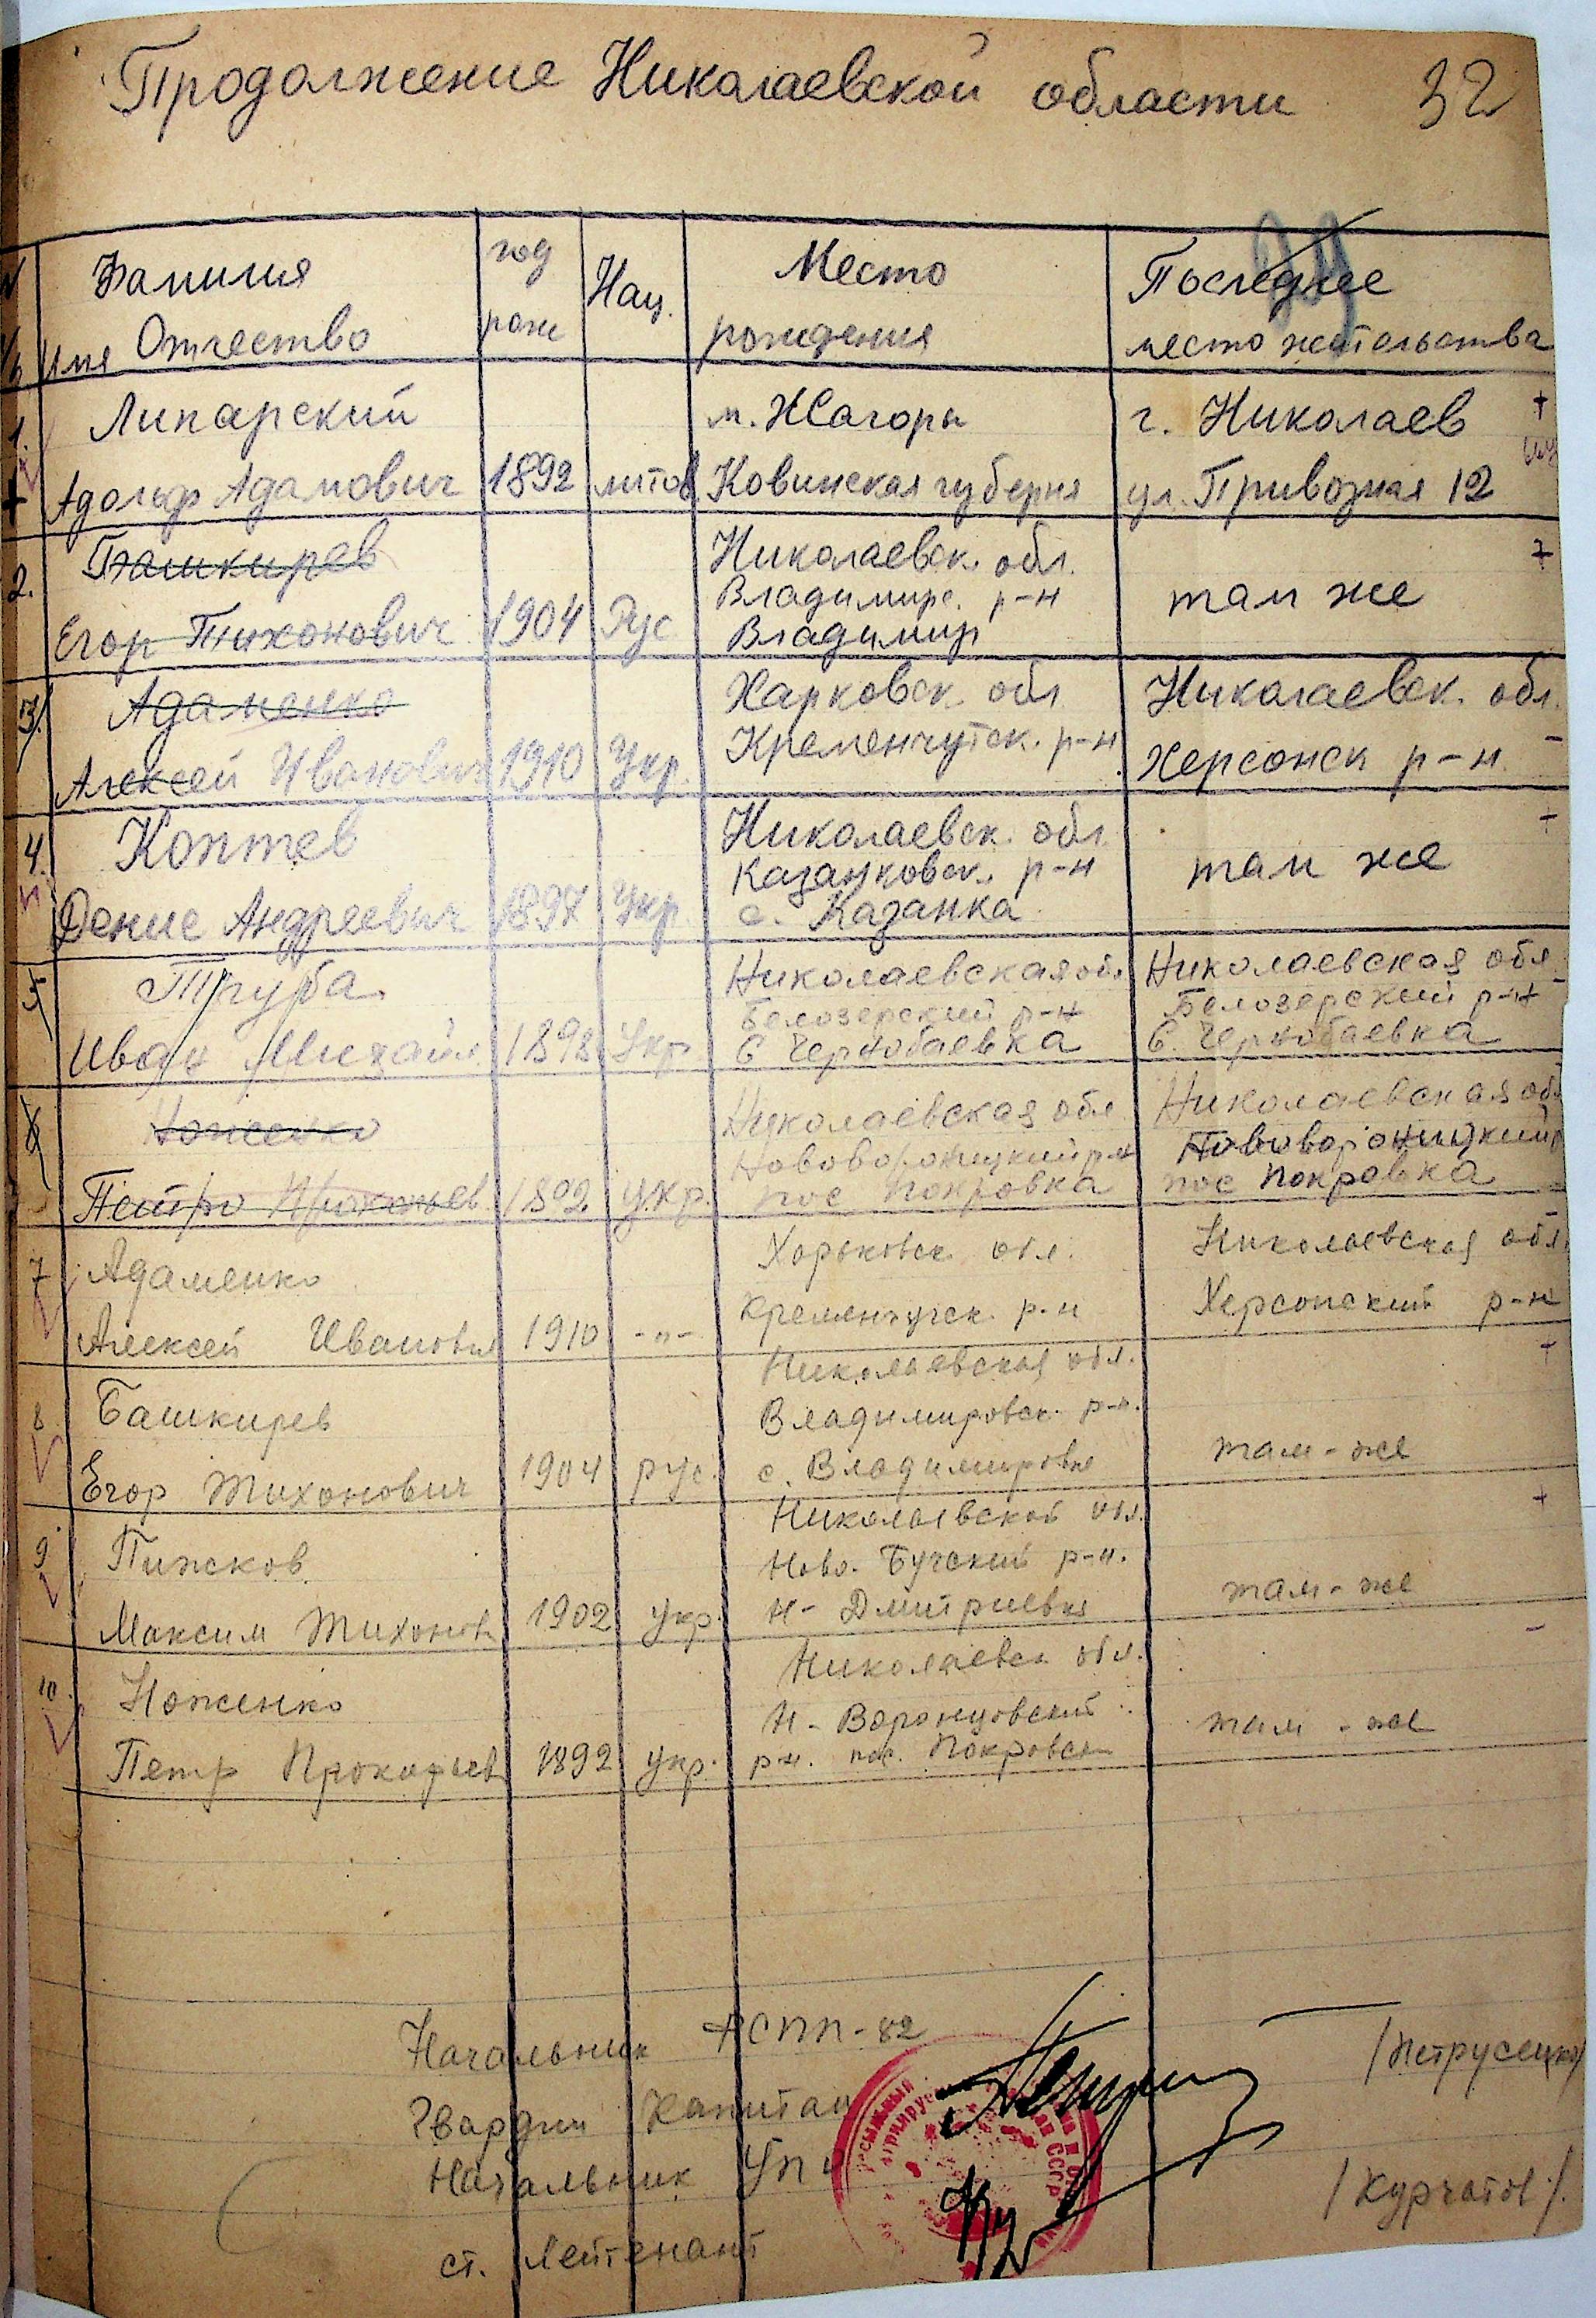 Продолжение Николаевской области 32
N Фамилия год Нац. Место Последнее
Имя Отчество рож рождения место жительства
1. Липарский м. Жагоры г. Николаев +
Адольф Адамович 1892 литов Ковинская губерня ул. Привозная 12
2. Башкирев Николаевск. обл. +
Владимирс. р-н там же
Егор Тихонович 1904 Рус Владимир
3. Адаменко Харковск. обл Николаевск. обл.
Алексей Иванович 1910 Укр. Кременчугск. р-н Херсонск р-н -
4. Коптев Николаевск. обл. +
Казанковск. р-н там же
Денис Андреевич 1897 Укр. с. Казанка
5 Труба Николаевская обл Николаевская обл
Белозерский р-н Белозерский р-н
Иван Михайл 1898 Укр С Чернобаевка С. Чернобаевка
6 Ноженко Николаевская обл Николаевская обл
Нововороницкий р-н Нововороницкий р
Петро Прокопьев 1892. Укр. пос Покровка пос Покровка
7 Адаменко Харьковск обл. Николаевская обл.
Алексей Иванович 1910 -"- Кременчугск. р-н Херсонский р-н
8 Башкирев Николаевская обл. +
Владимировск. р-н.
Егор Тихонович 1904 рус. с. Владимировка там-же
9. Пижсков Николаевской обл. +
Ново. Бугский р-н.
Максим Тихонов 1902 укр. Н-Дмитриевка там-же
10. Ноженко Николаевск обл. -
Н-Воронцовский
Петр Прокофьев 1892 укр. р-н. пос. Покровск там-же
Начальник РСПП-82 /Петрусецкий/
Гвардии Капитан
Начальник УПЧ /Курчатов/.
ст. Лейтенант